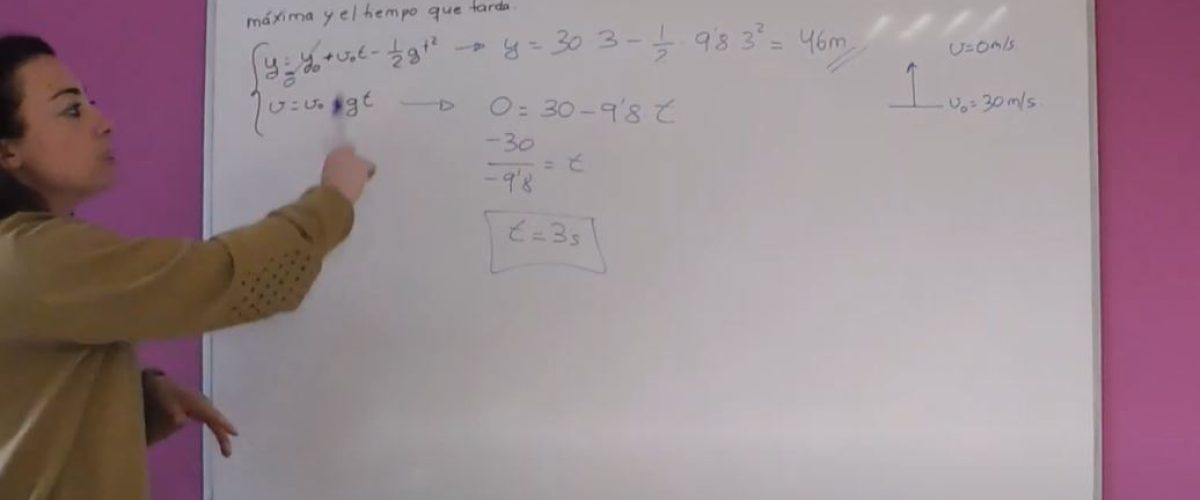 máxima y el tiempo que tarda.
y = y₀ + v₀t - 1/2 gt² → y = 30 3 - 1/2 9'8 3² = 46m
0
v = v₀ gt → 0 = 30 - 9'8 t
-30/-9'8 = t
t = 3s
v = 0 m/s
v₀ = 30 m/s